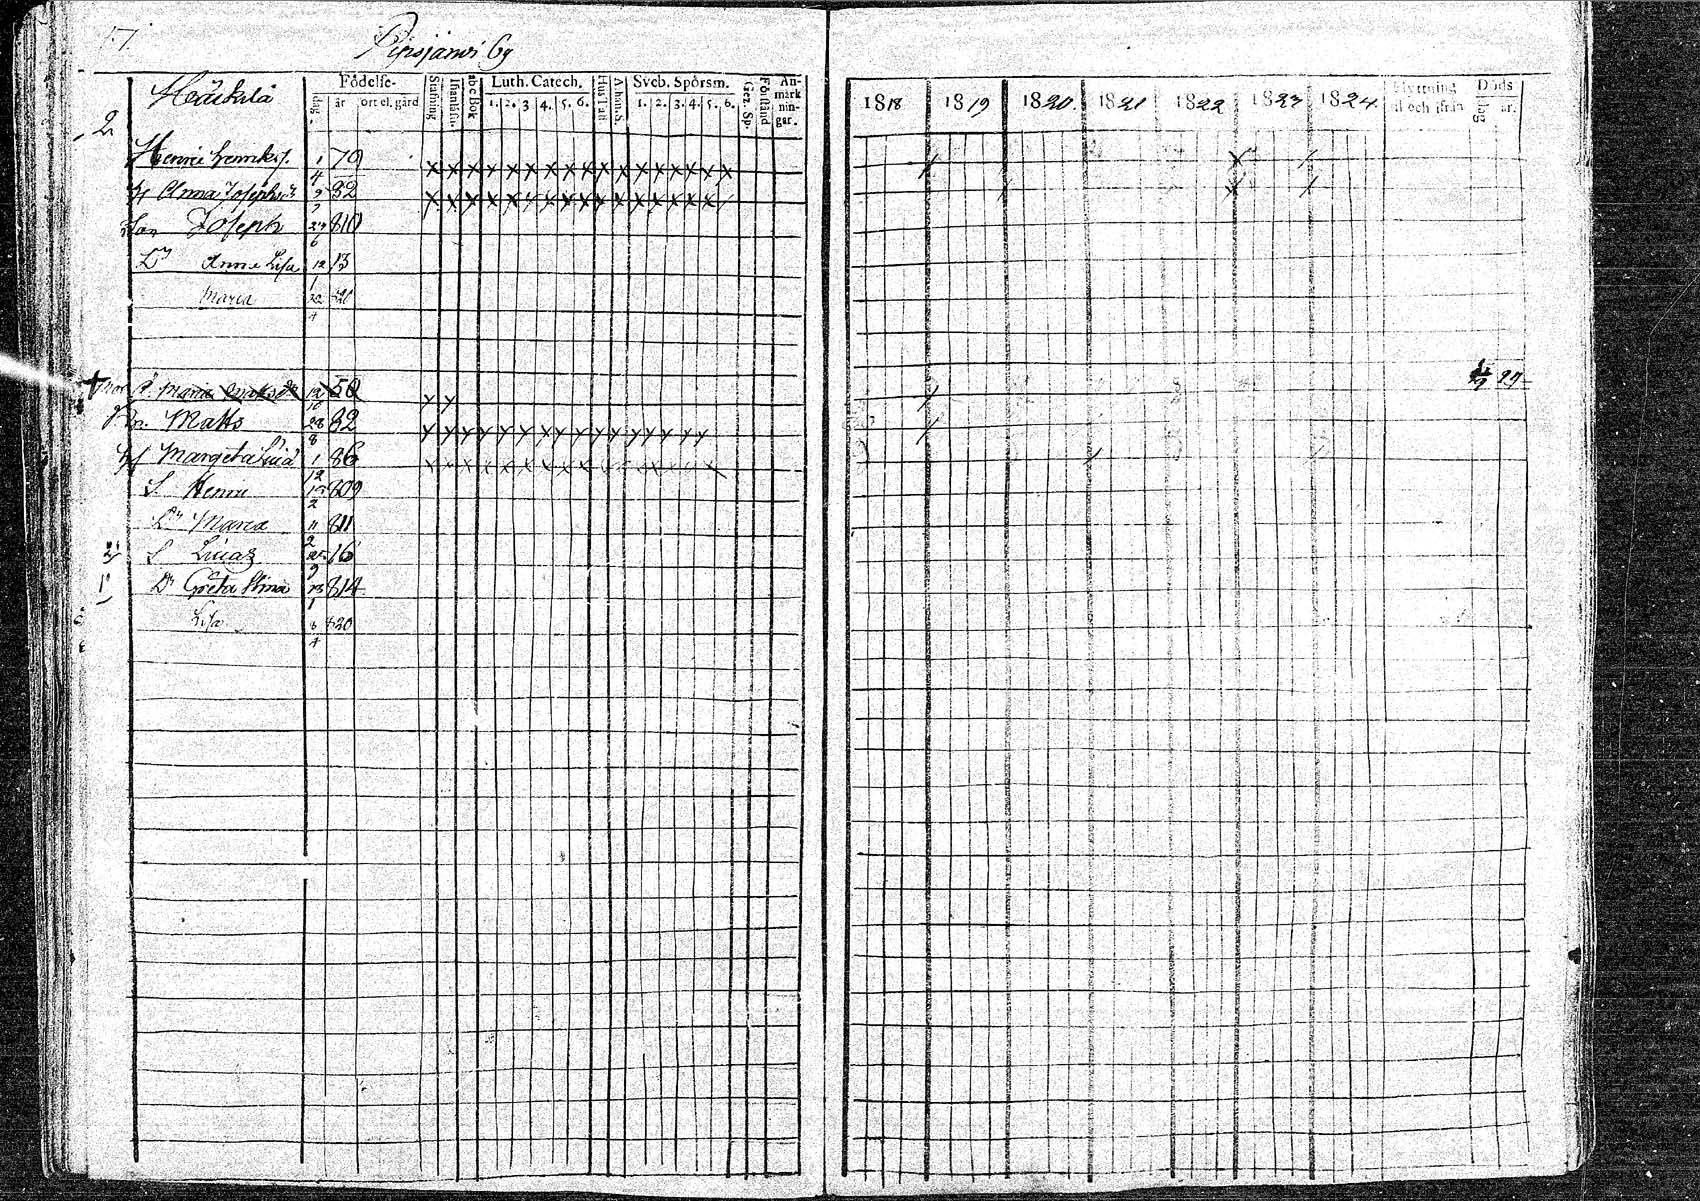 17.
Pipsjärvi By
Heickilä
Födelse-
dag.
år
ort el. gård
Stafning
Innanläsn.
abc Bok
Luth. Catech.
1. 2. 3 4. 5. 6.
Hus Tafl
A. hans S.
Sveb. Spörsm.
1. 2. 3. 4. 5. 6.
Gez. Sp.
Förstånd
An-
märk
nin-
gar.
1818 1819 1820. 1821 1822 1823 1824.
Flyttning
til och ifrån
Döds
dag
år.
2
Henric Henriks. 1/4 79
H Anna Josephsd. 9/7 82
Son Joseph 27/6 810
Dr Anna Lisa 12/1 13
Maria 22/4 820
Mor E. Maria Matts dr 12/10 50
29
Br. Matts 28/8 82
H Margeta 1/12 86
S. Henric 15/2 809
Dr Maria 11/2 811
S Lucas 25/9 16
Dr Greta Stina 13/1 814
Lisa 6/4 820